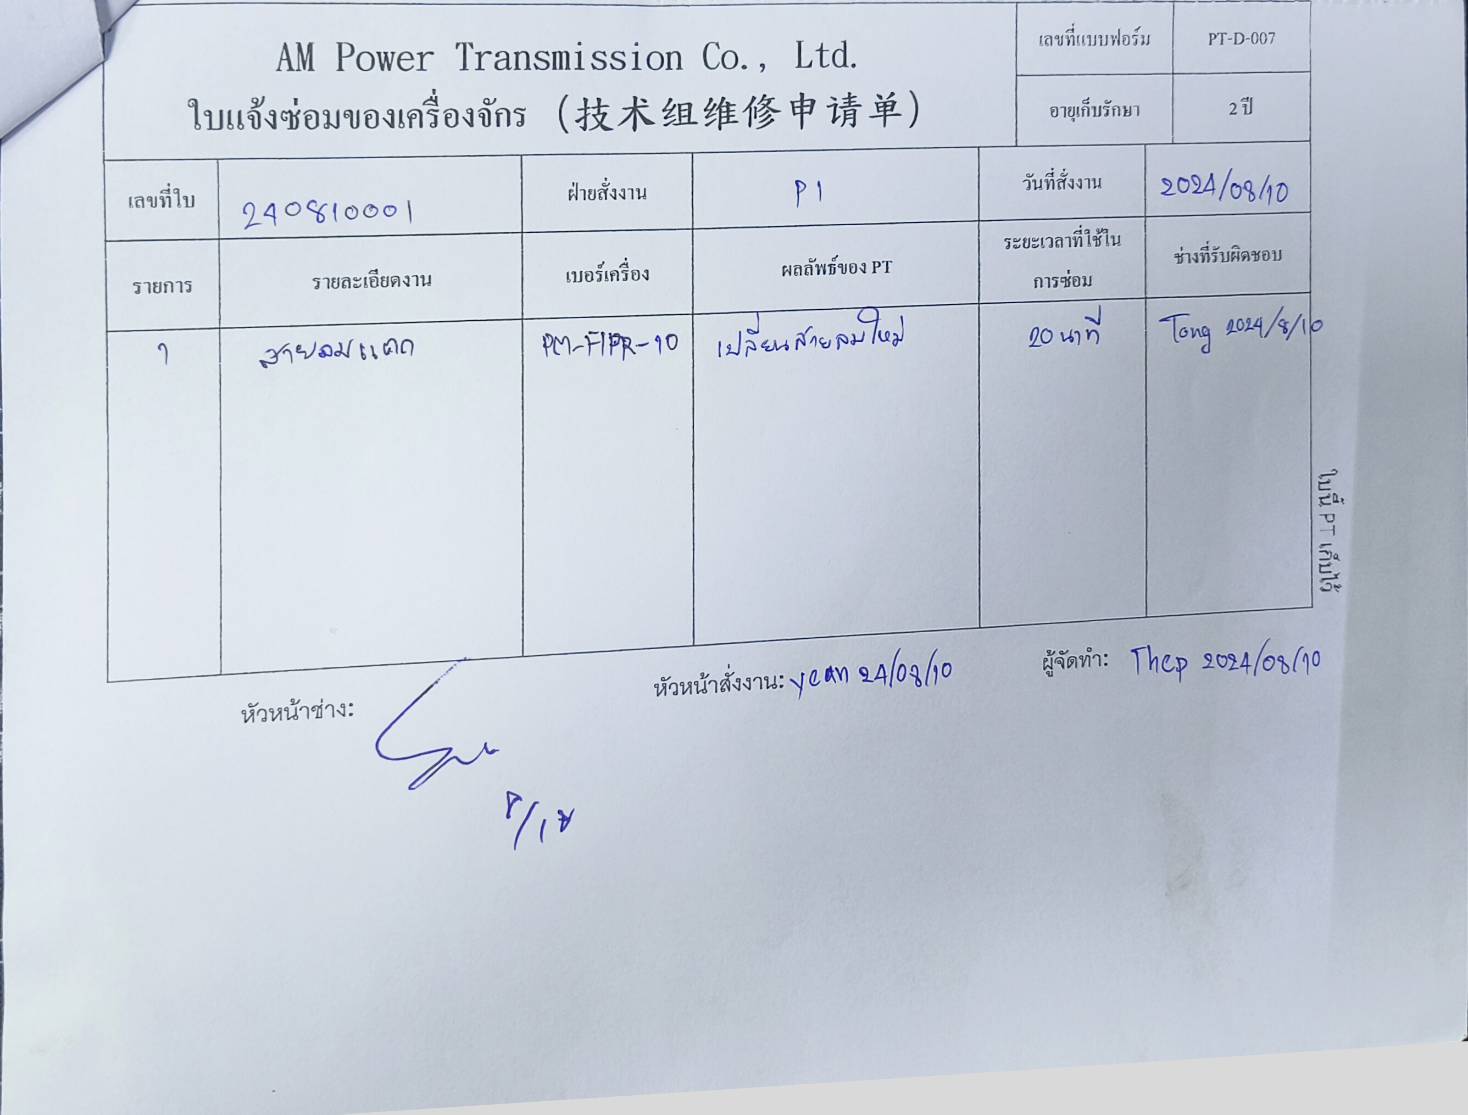 AM Power Transmission Co., Ltd.
ใบแจ้งซ่อมของเครื่องจักร (技术组维修申请单)
เลขที่แบบฟอร์ม PT-D-007
อายุเก็บรักษา 2 ปี
เลขที่ใบ 240810001 ฝ่ายสั่งงาน P1 วันที่สั่งงาน 2024/08/10
รายการ รายละเอียดงาน เบอร์เครื่อง ผลลัพธ์ของ PT ระยะเวลาที่ใช้ในการซ่อม ช่างที่รับผิดชอบ
1 สายลมแตก เปลี่ยนสายลมใหม่ 20 นาที Tong 2024/8/10
ใบนี้ PT เก็บไว้
หัวหน้าช่าง:
หัวหน้าสั่งงาน: yean 24/08/10
ผู้จัดทำ: Thep 2024/08/10